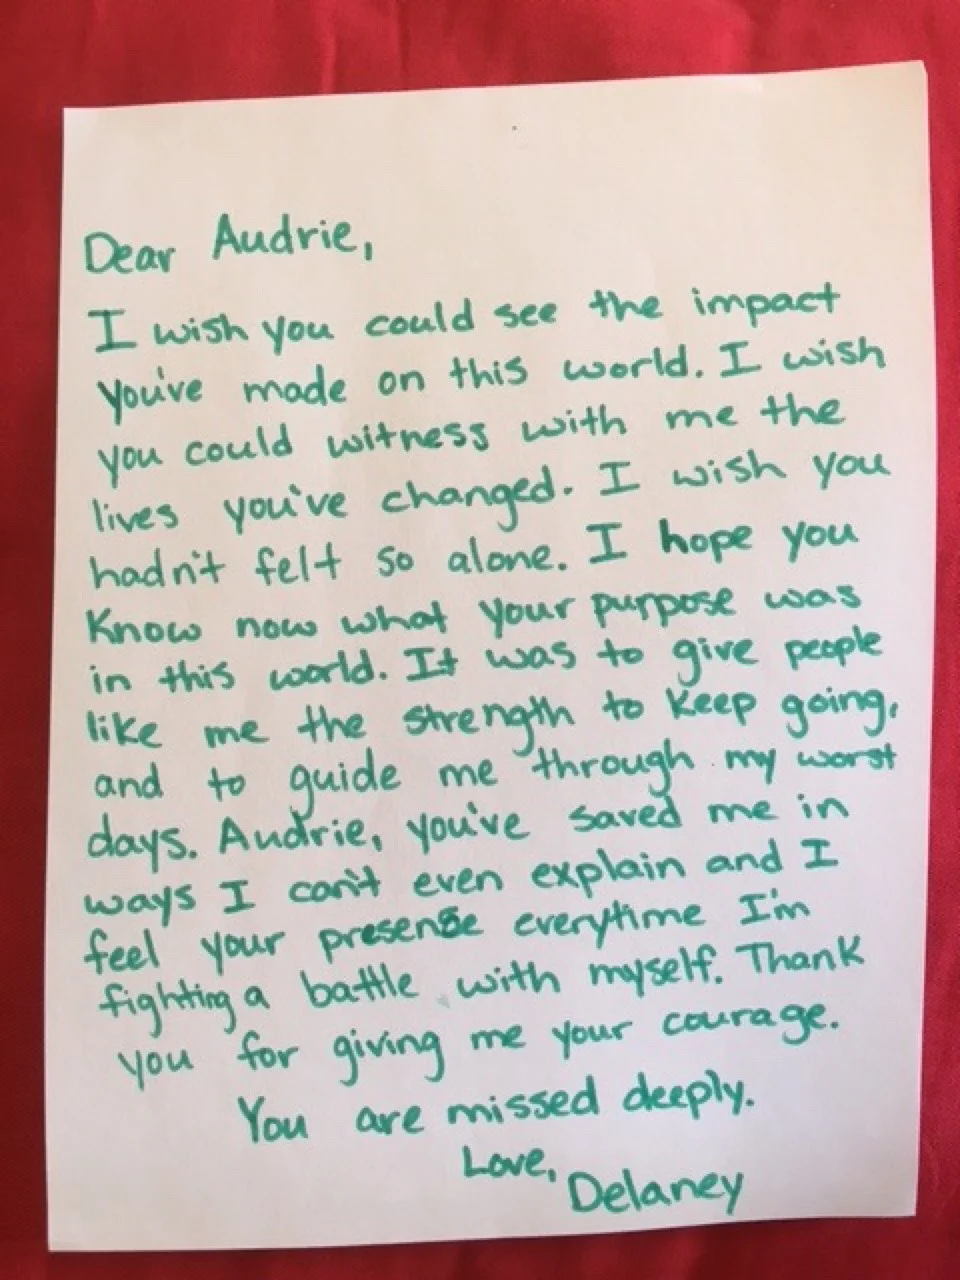 Dear Audrie,
I wish you could see the impact
you've made on this world. I wish
you could witness with me the
lives you've changed. I wish you
hadn't felt so alone. I hope you
know now what your purpose was
in this world. It was to give people
like me the strength to keep going,
and to guide me through my worst
days. Audrie, you've saved me in
ways I can't even explain and I
feel your presense everytime I'm
fighting a battle with myself. Thank
you for giving me your courage.
You are missed deeply.
Love,
Delaney